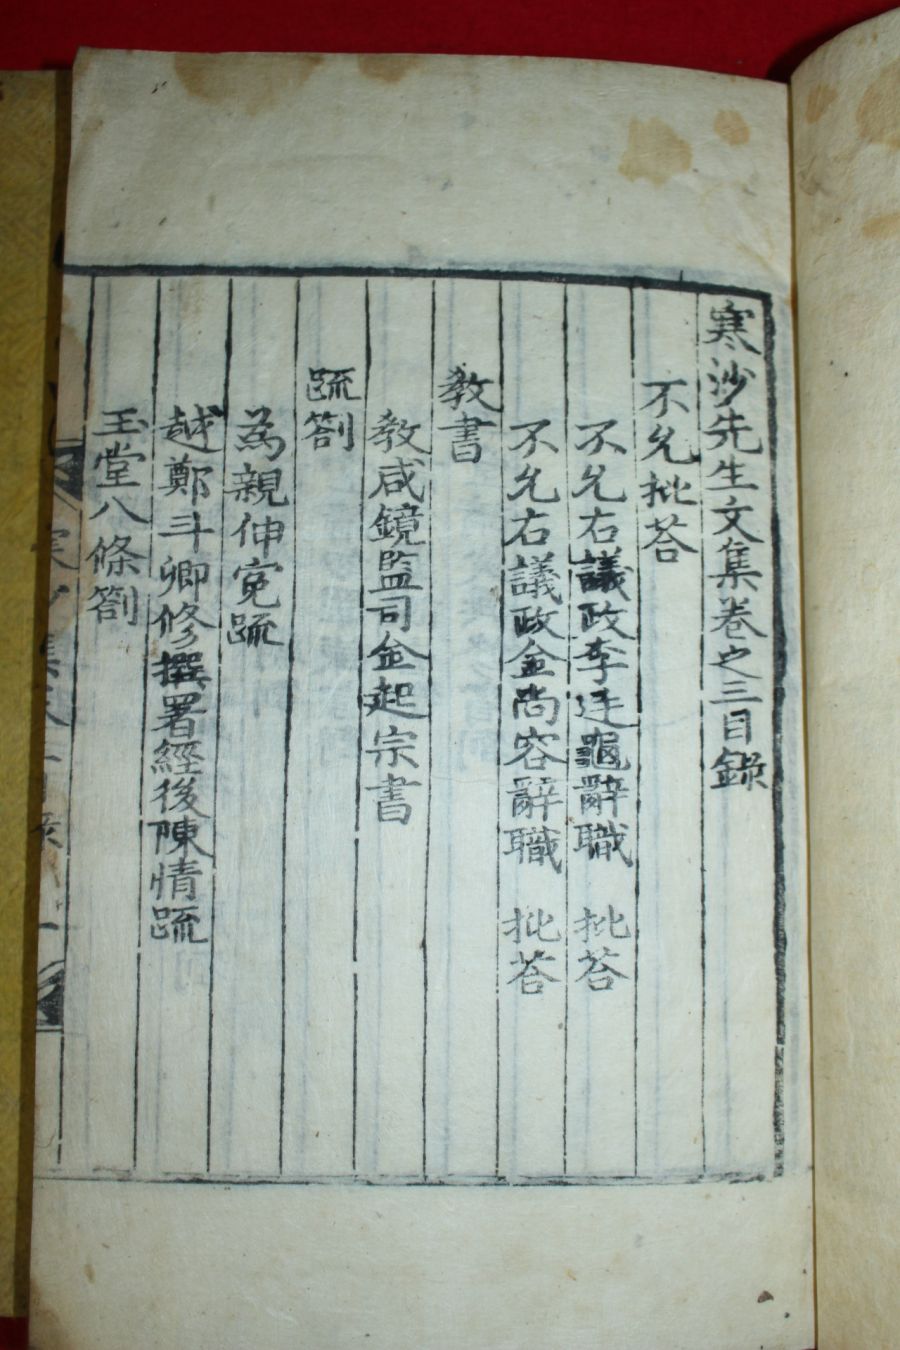 寒沙先生文集卷之三目錄
不允批荅
不允右議政李廷龜辭職 批荅
不允右議政金尙容辭職 批荅
教書
教咸鏡監司金起宗書
疏劄
爲親伸寃疏
越鄭斗卿修撰署經後陳情疏
玉堂八條劄